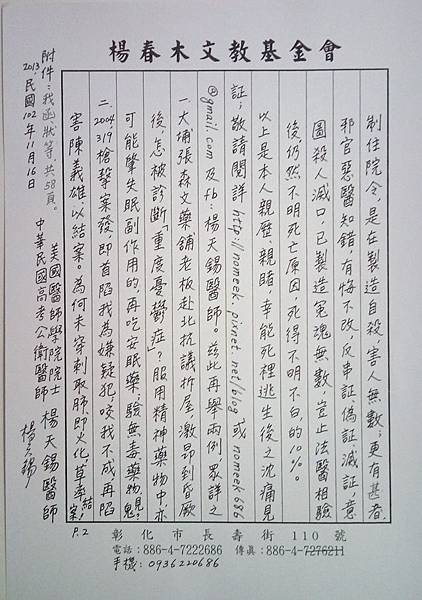 楊春木文教基金會
制住院令，是在製造自殺害人無數；更有甚者，
邪官惡醫知錯，有悔不改，反串証、偽証、滅証，意
圖殺人滅口，已製造冤魂無數，豈止法醫相驗
後，仍然不明死亡原因，死得不明不白的10%。
以上是本人親歷、親睹，幸能死裡逃生後之沈痛見
証；敬請閱詳 http://nomeek.pixnet.net/blog 或 nomeek686
@gmail.com 及 fb：楊天錫醫師。茲此再舉兩例眾詳之
一、大埔張森文藥舖老板赴北抗議拆屋，激昂到昏厥
後，怎被診斷「重度憂鬱症」？服用精神藥物中亦
可能肇失眠副作用的再吃安眠藥，驗無毒藥物，見鬼，
二、2004 319槍擊案發即首陷我為嫌疑犯，咬我不成，再陷
害陳義雄以結案。為何未穿刺取肺，即火化，草率結案，
P.2
美國醫師學院院士
中華民國高考公衛醫師
楊天錫醫師
附件：我函狀等共58頁。
2013.民國102年11月16日
彰化市長壽街110號
電話：886-4-7222686 傳真：886-4-7276211
手機：0936220686